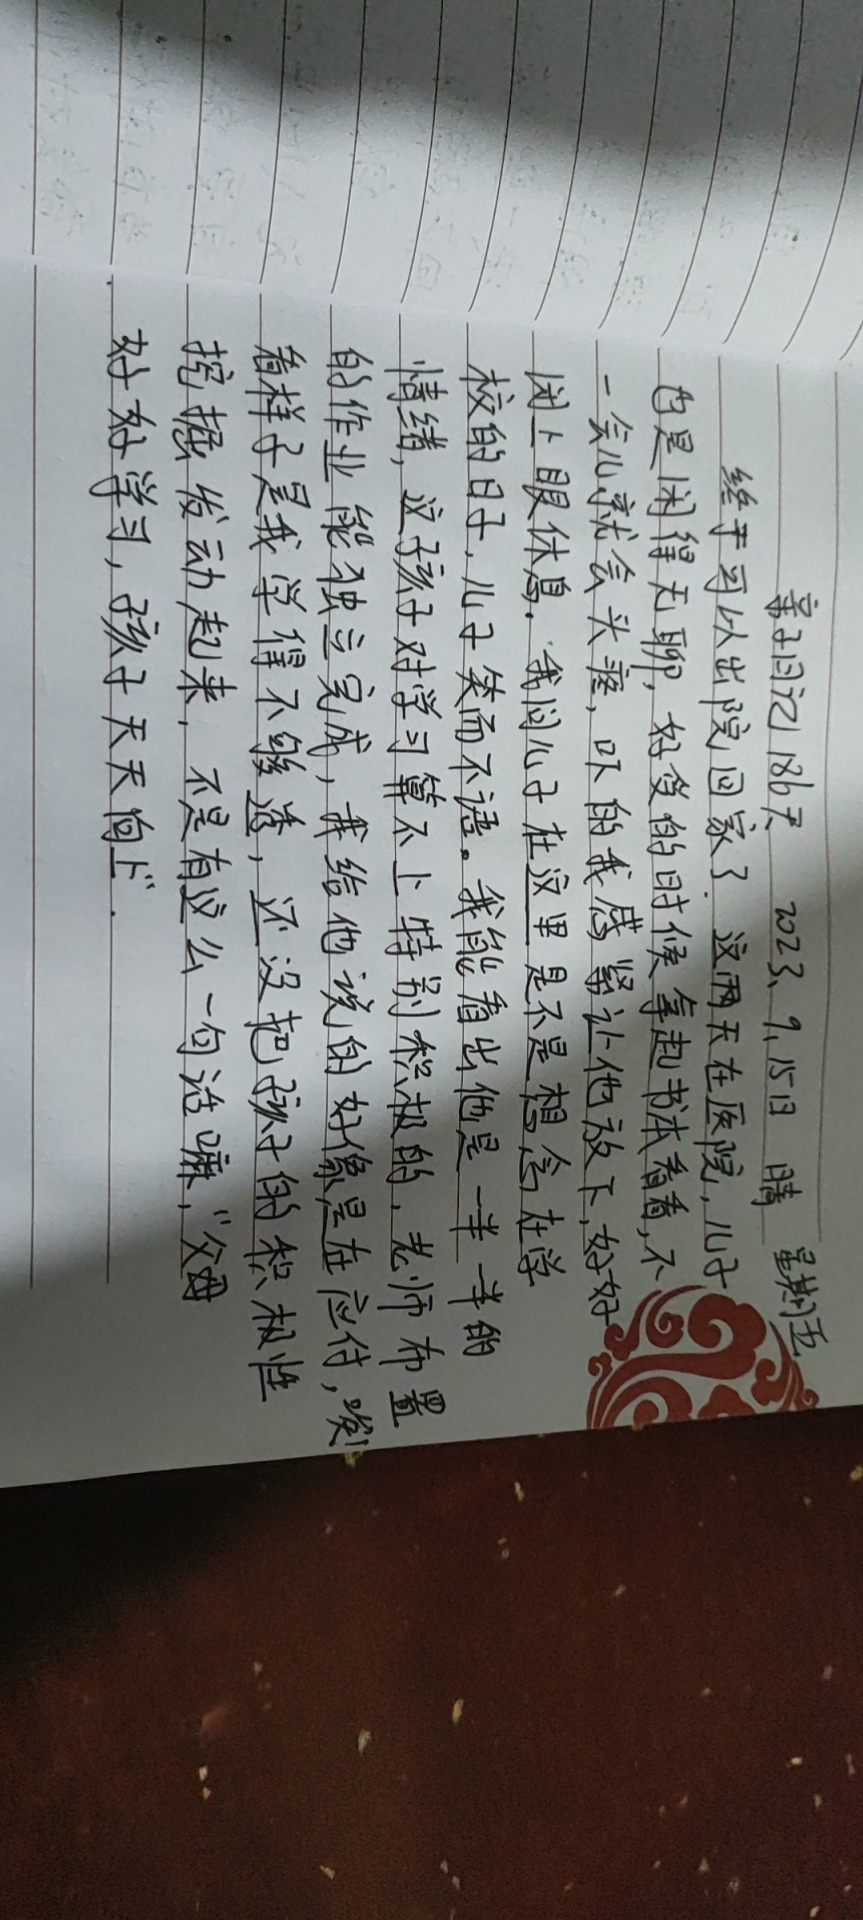 亲子日记186天 2023、9、15日 晴 星期五
终于可以出院回家了.这两天在医院,儿子
的是闲得无聊,好多的时候拿起书本看看,不
一会儿就会头疼,吓的我感紧让他放下,好好
闭上眼休息.我问儿子在这里是不是想念在学
校的日子,儿子笑而不语。我能看出他是一半一半的
情绪,这孩子对学习算不上特别积极的,老师布置
的作业能独立完成,我给他说的好像是在应付,唉!
看样子是我学得不够透,还没把孩子的积极性
挖掘发动起来,不是有这么一句话嘛,"父母
好好学习,孩子天天向上".